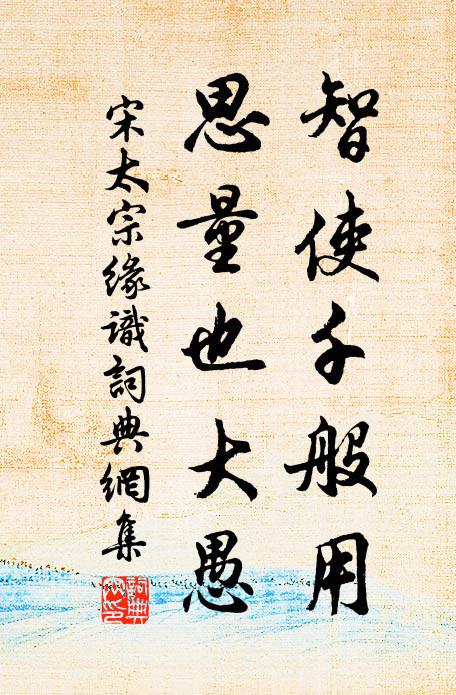 智使千般用
思量也大愚
宋太宗緣識詞典網集